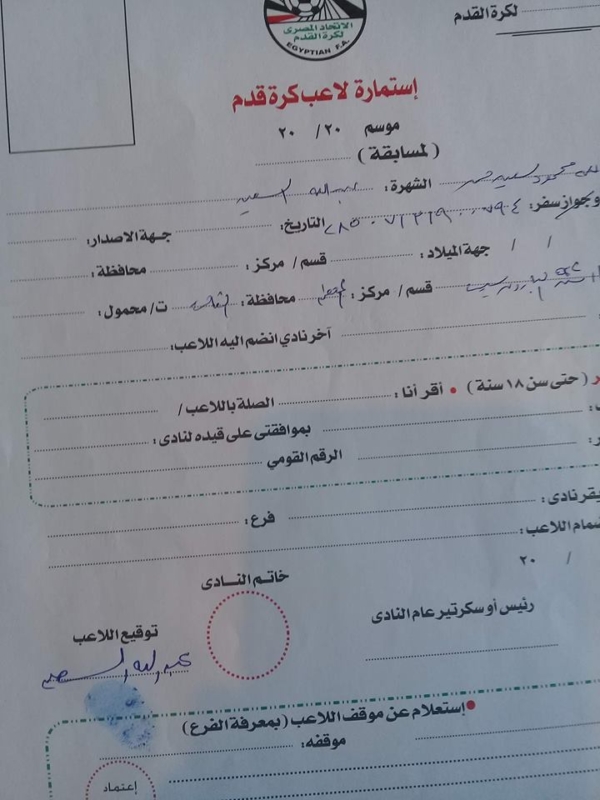 لكرة القدم
الاتحاد المصرى
لكرة القدم
EGYPTIAN F.A.
إستمارة لاعب كرة قدم
موسم ٢٠ / ٢٠
(لمسابقة )
محمود سعيد الشهرة: عبد الله السعيد
وجواز سفر: التاريخ: جهة الاصدار:
/ / جهة الميلاد: قسم/ مركز: محافظة:
قسم/ مركز: المقطم محافظة: القاهرة ت/ محمول:
آخر نادي انضم اليه اللاعب:
(حتى سن ١٨ سنة) • أقر أنا: الصلة باللاعب/
بموافقتى على قيده لنادى:
الرقم القومي
يقر نادى: فرع:
ضمام اللاعب:
/ ٢٠
خاتم النادى
رئيس أو سكرتير عام النادى
توقيع اللاعب
عبد الله السعيد
•إستعلام عن موقف اللاعب (بمعرفة الفرع)
موقفه:
إعتماد